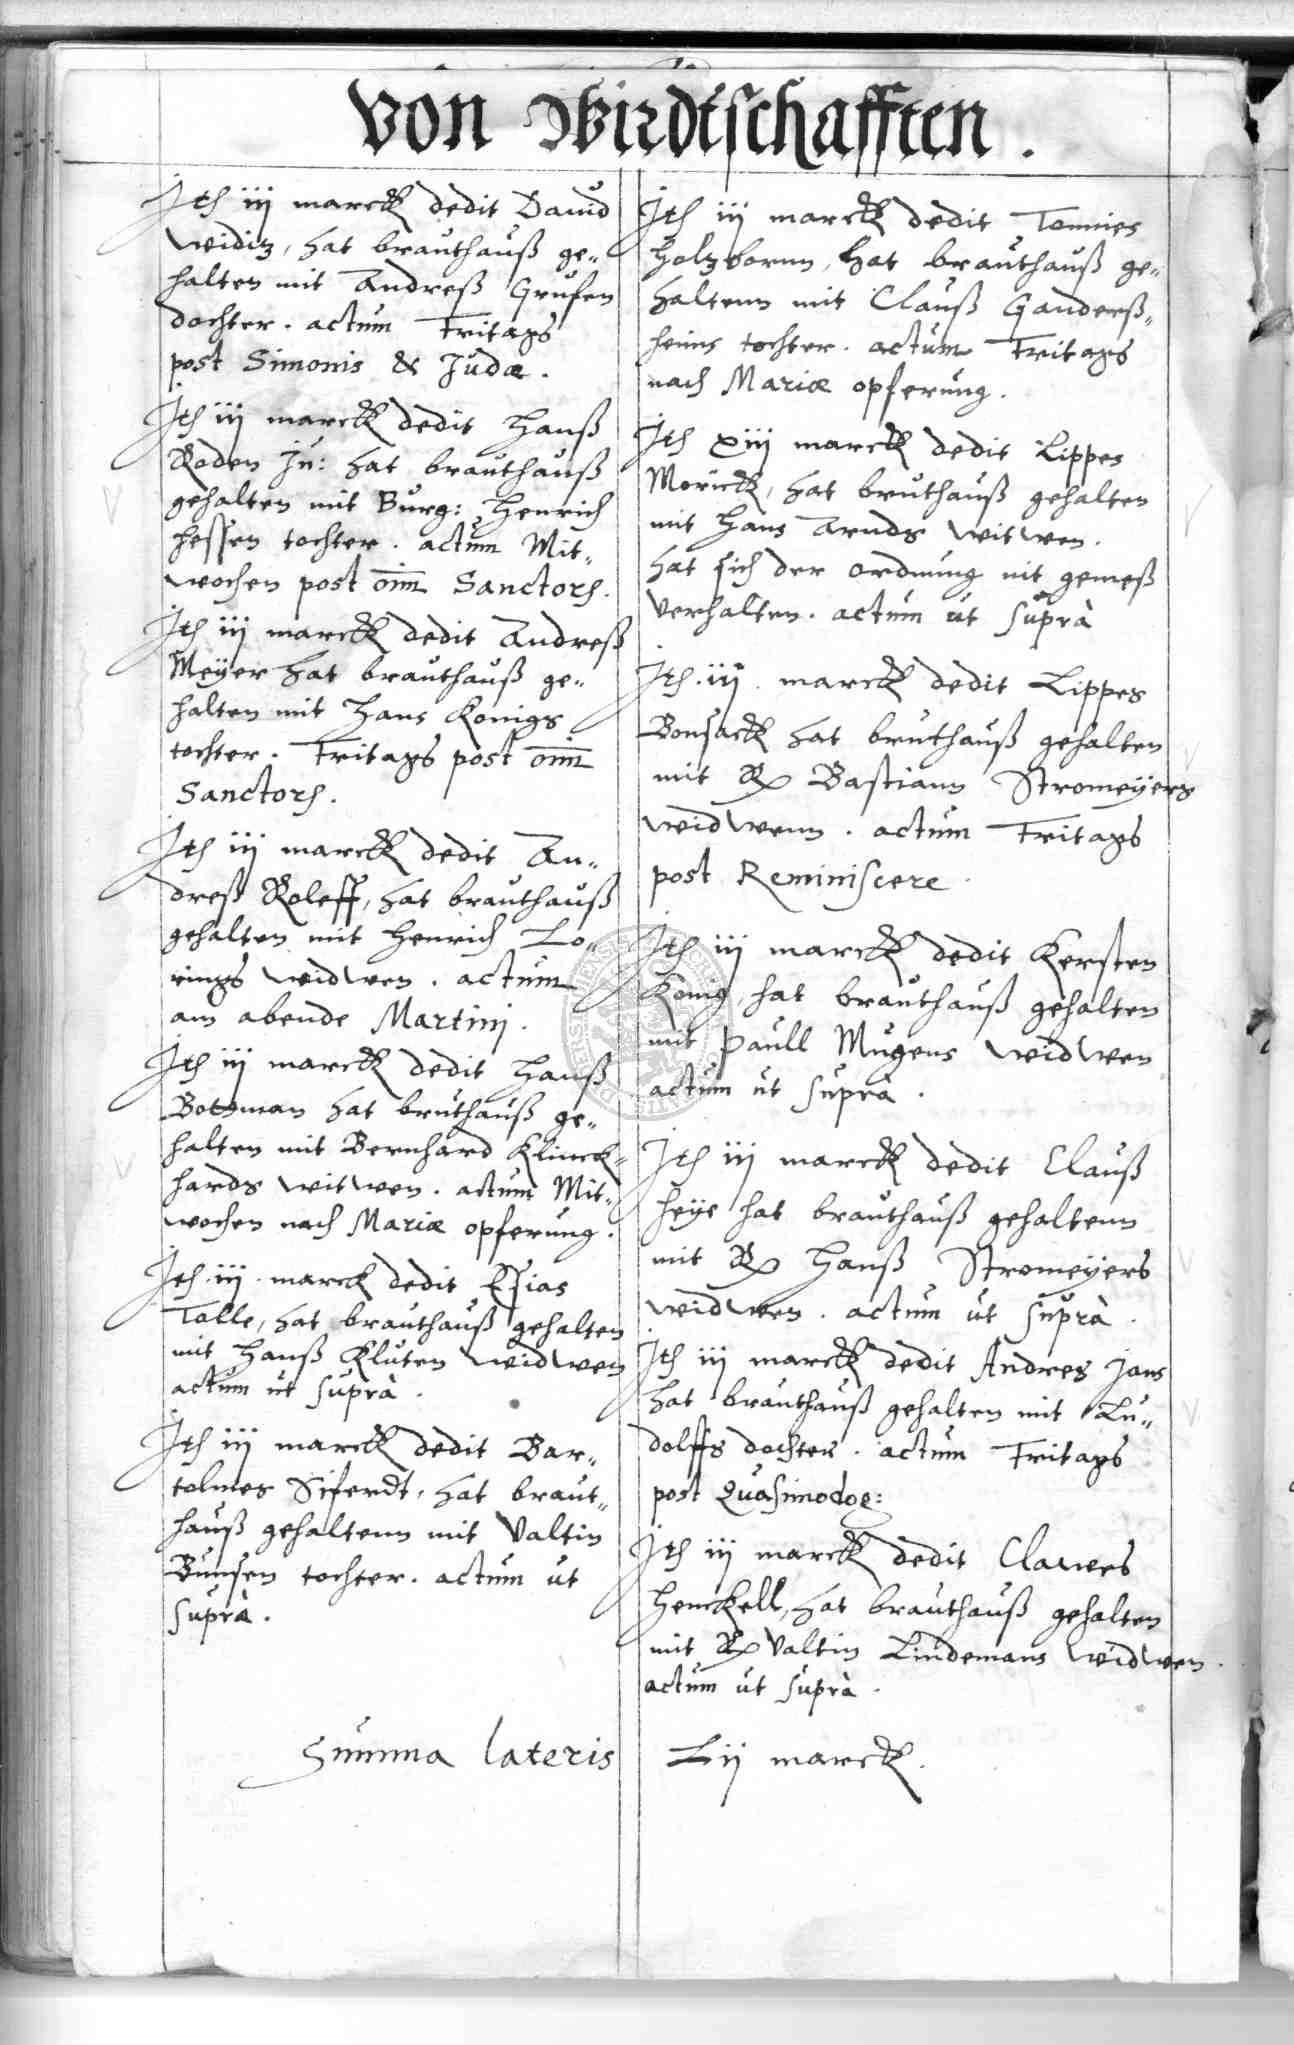 Von Wirdtschafften.
Ith iij marck dedit Dauid
Widitz, hat brauthauß ge„
halten mit Andreß Grufen
dochter. actum Fritags
post Simonis & Judæ.
Ith iij marck dedit Hanß
Roden Ju: hat brauthauß
gehalten mit Burg: Henrich
Hessen tochter. actum Mit„
wochen post om̄ Sanctorh.
Ith iij marck dedit Andreß
Meÿer hat brauthauß ge„
halten mit Hans Konigs
tochter. Fritags post om̄
Sanctorh.
Ith iij marck dedit An„
dreß Roleff, hat brauthauß
gehalten mit Henrich Lo„
rings widwen. actum
am abende Martinj.
Ith iij marck dedit Hanß
Botzman hat bruthauß ge„
halten mit Bernhard Klinck„
hards witwen. actum Mit„
wochen nach Mariæ opferung.
Ith. iij. marck dedit Esias
Tolle, hat brauthauß gehalten
mit Hanß Kluten widwen
actum ut suprà.
Ith iij marck dedit Bar„
tolmes Siferdt, hat braut„
hauß gehaltenn mit Valtin
Bunsen tochter. actum ut
suprà.
Ith iij marck dedit Tonnies
Holtzbornn, hat brauthauß ge„
haltenn mit Clauß Ganderß„
heims tochter. actum Fritags
nach Mariæ opferung.
Ith xiij marck dedit Lippes
Morick, hat bruthauß gehalten
mit Hans Arnds witwen.
hat sich der ordnung nit gemeß
verhalten. actum ut suprà
Ith. iij. marck dedit Lippes
Bonsack hat bruthauß gehalten
mit R Bastiann Stromeÿers
widwenn. actum Fritags
post Reminiscere.
Ith iij marck dedit Kersten
Konig, hat brauthauß gehalten
mit Paull Mugens widwen
actum ut suprà.
Ith iij marck dedit Clauß
Heÿe hat brauthauß gehaltenn
mit R Hanß Stromeÿers
widwen. actum ut suprà.
Ith iij marck dedit Andres Jans
hat brauthauß gehalten mit Lu„
dolffs dochter. actum Fritags
post Quasimodog:
Ith iij marck dedit Clawes
Henckell, hat brauthauß gehalten
mit R Valtin Lindemans widwen.
actum ut suprà.
Summa lateris Lij marck.